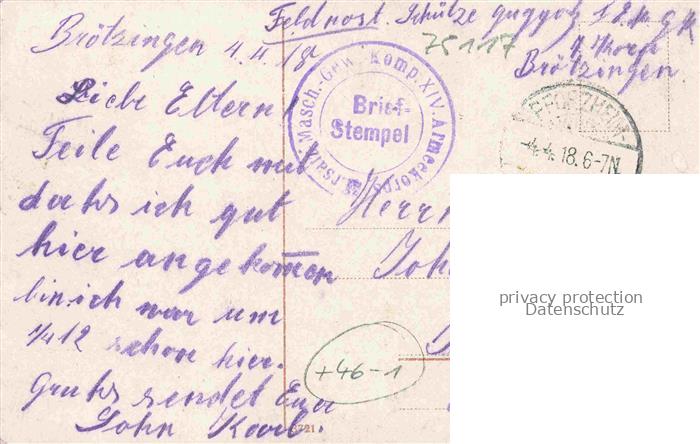 Feldpost. Schütze
Brötzingen 4.4.18
75117
Brötzingen
Liebe Eltern!
Teile Euch mit
dahs ich gut
hier angekommen
bin ich war um
1/4 12 schon hier.
Gruhs sendet Euer
Sohn Karl.
Ersatz-Masch.-Gew.-Komp. XIV. Armeekorps
Brief-
Stempel
PFORZHEIM
4.4.18.6-7N
Herrn
Joh
+46-1
privacy protection
Datenschutz